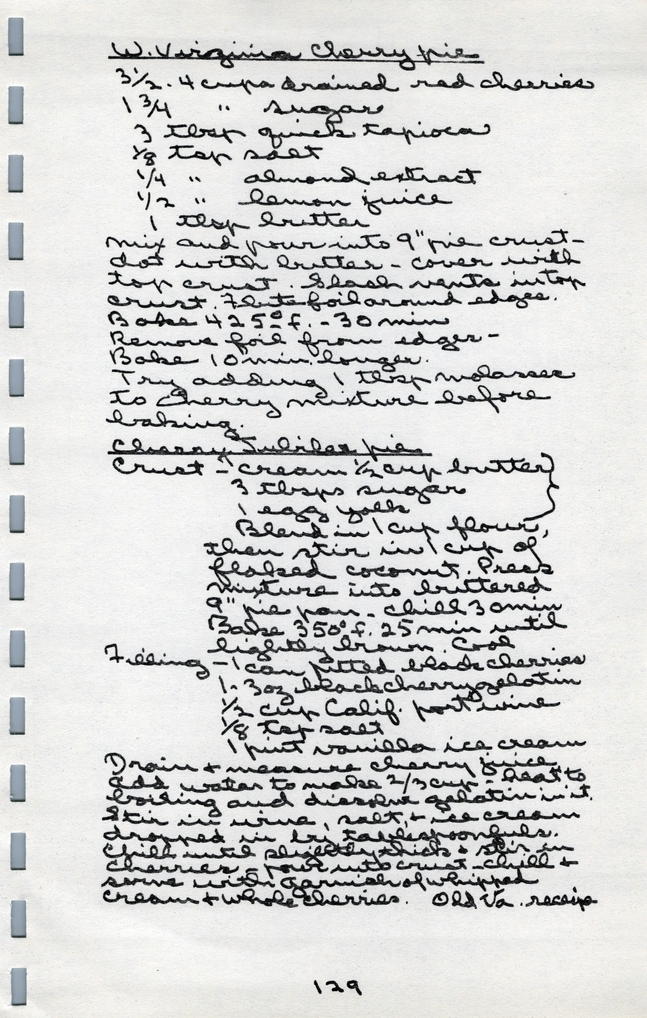 W. Virginia Cherry pie
3 1/2 - 4 cups drained red cherries
1 3/4 " sugar
3 tbsp quick tapioca
1/8 tsp salt
1/4 " almond extract
1/2 " lemon juice
1 tbsp butter
Mix and pour into 9" pie crust -
dot with butter - cover with
top crust. Slash vents in top
crust. Flute foil around edges.
Bake 425° f. - 30 min
Remove foil from edges -
Bake 10 min. longer.
Try adding 1 tbsp molasses
to cherry mixture before
baking.
Cherry Jubilee pie
Crust - cream 1/2 cup butter
3 tbsps sugar
1 egg yolk
Blend in 1 cup flour,
then stir in 1 cup of
flaked coconut. Press
mixture into buttered
9" pie pan - chill 30 min
Bake 350° f. 25 min until
lightly brown. Cool
Filling - 1 can pitted black cherries
1 - 3 oz black cherry gelatin
1/2 cup Calif. port wine
1/8 tsp salt
1 pint vanilla ice cream
Drain + measure cherry juice
add water to make 2/3 cup - heat to
boiling and dissolve gelatin in it.
Stir in wine, salt, + ice cream
dropped in by tablespoonfuls.
Chill until slightly thick + stir in
cherries, pour into crust - chill +
serve with garnish of whipped
cream + whole cherries. Old Va. receipe
129